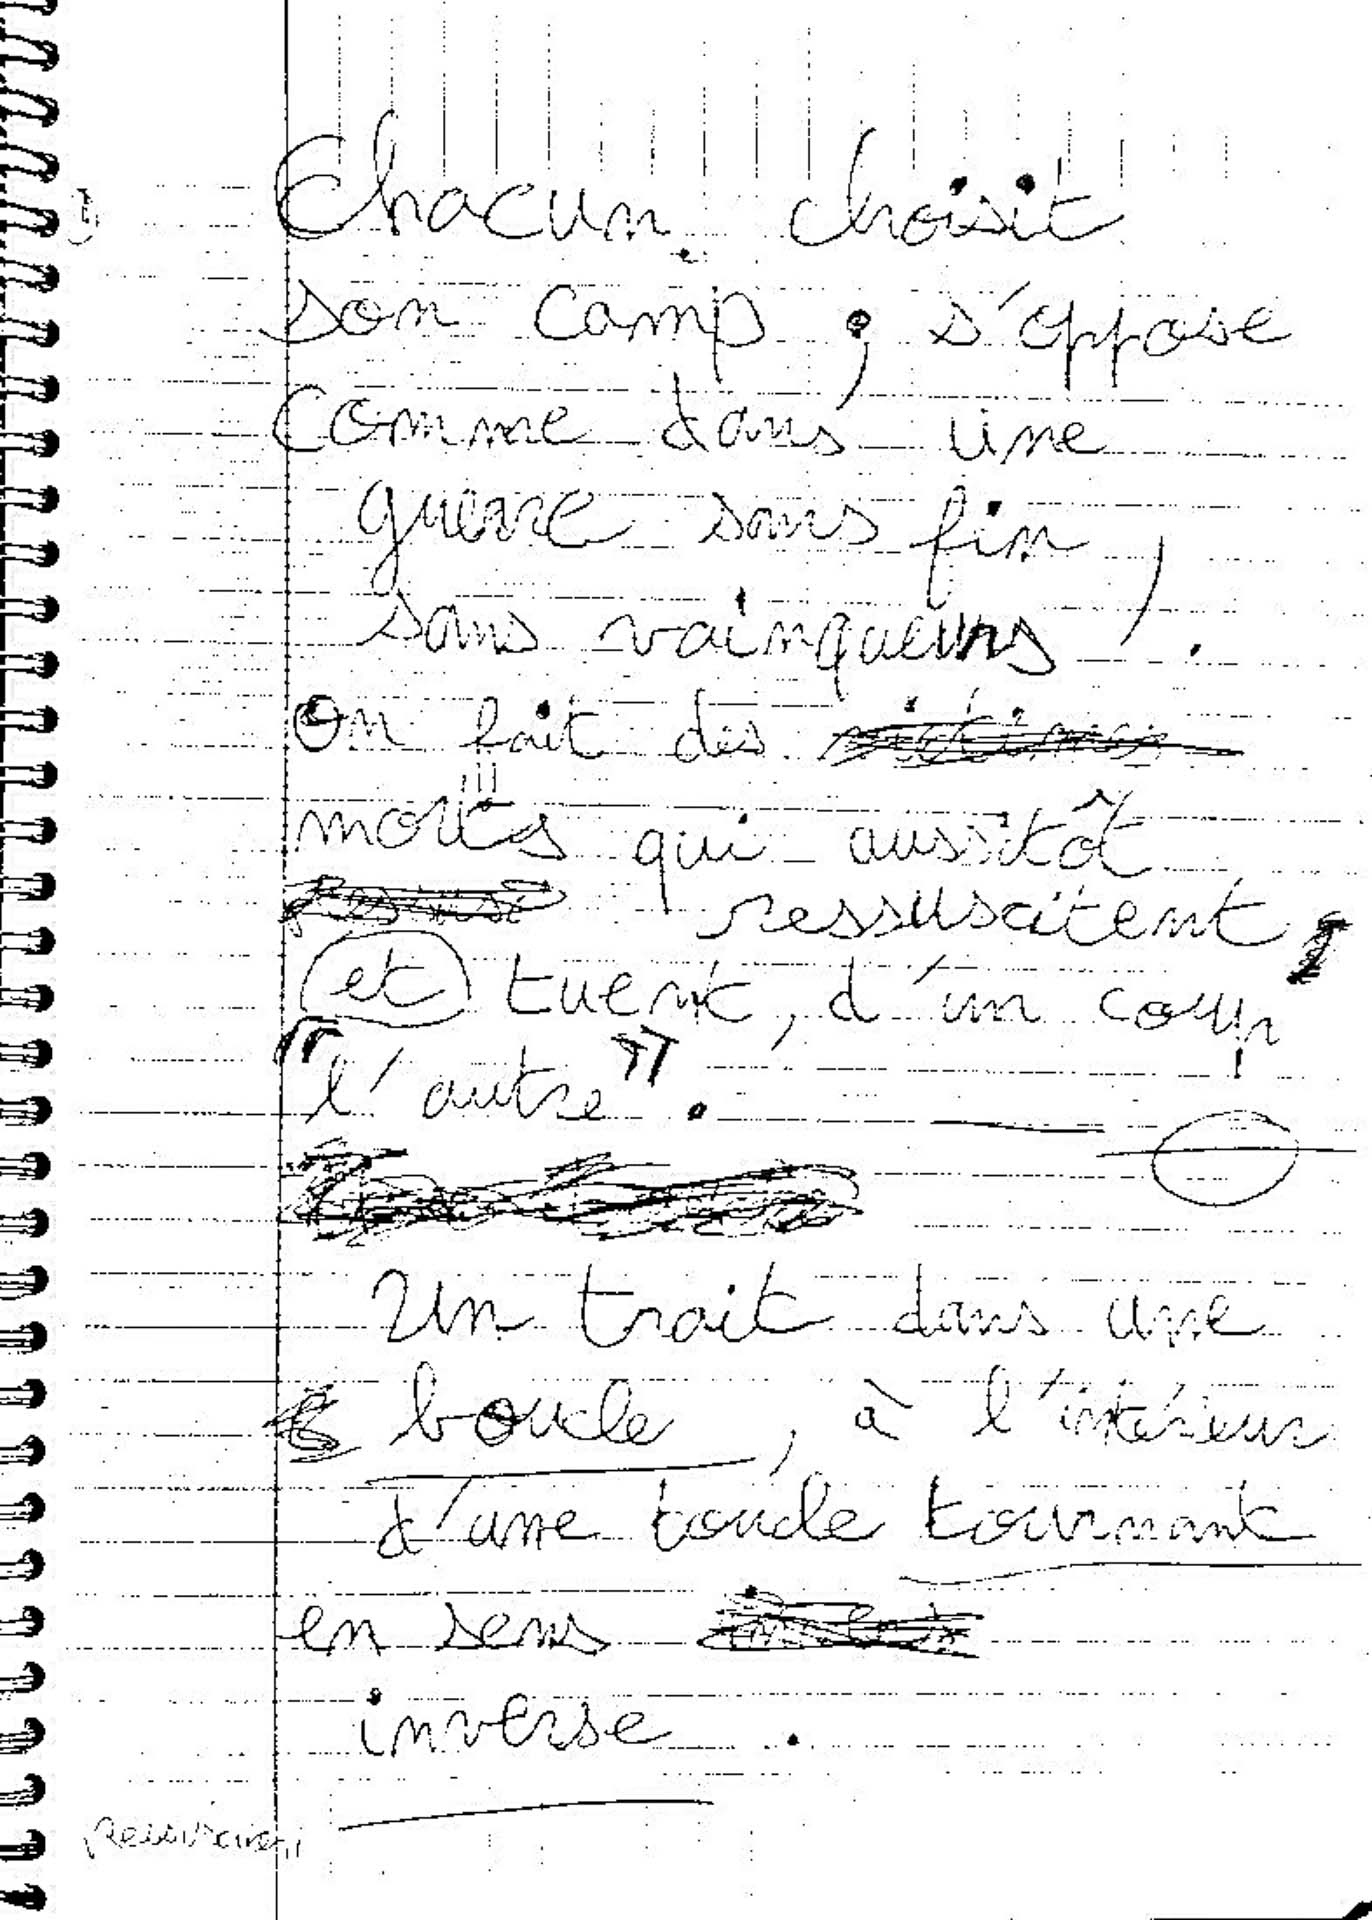 Chacun choisit
son camp ; s'oppose
comme dans une
guerre sans fin,
sans vainqueurs.
On fait des victimes
morts qui aussitôt
ressuscitent,
et tuent, d'un coup
"l'autre".
Un trait dans une
boucle, à l'intérieur
d'une boucle tournant
en sens
inverse.